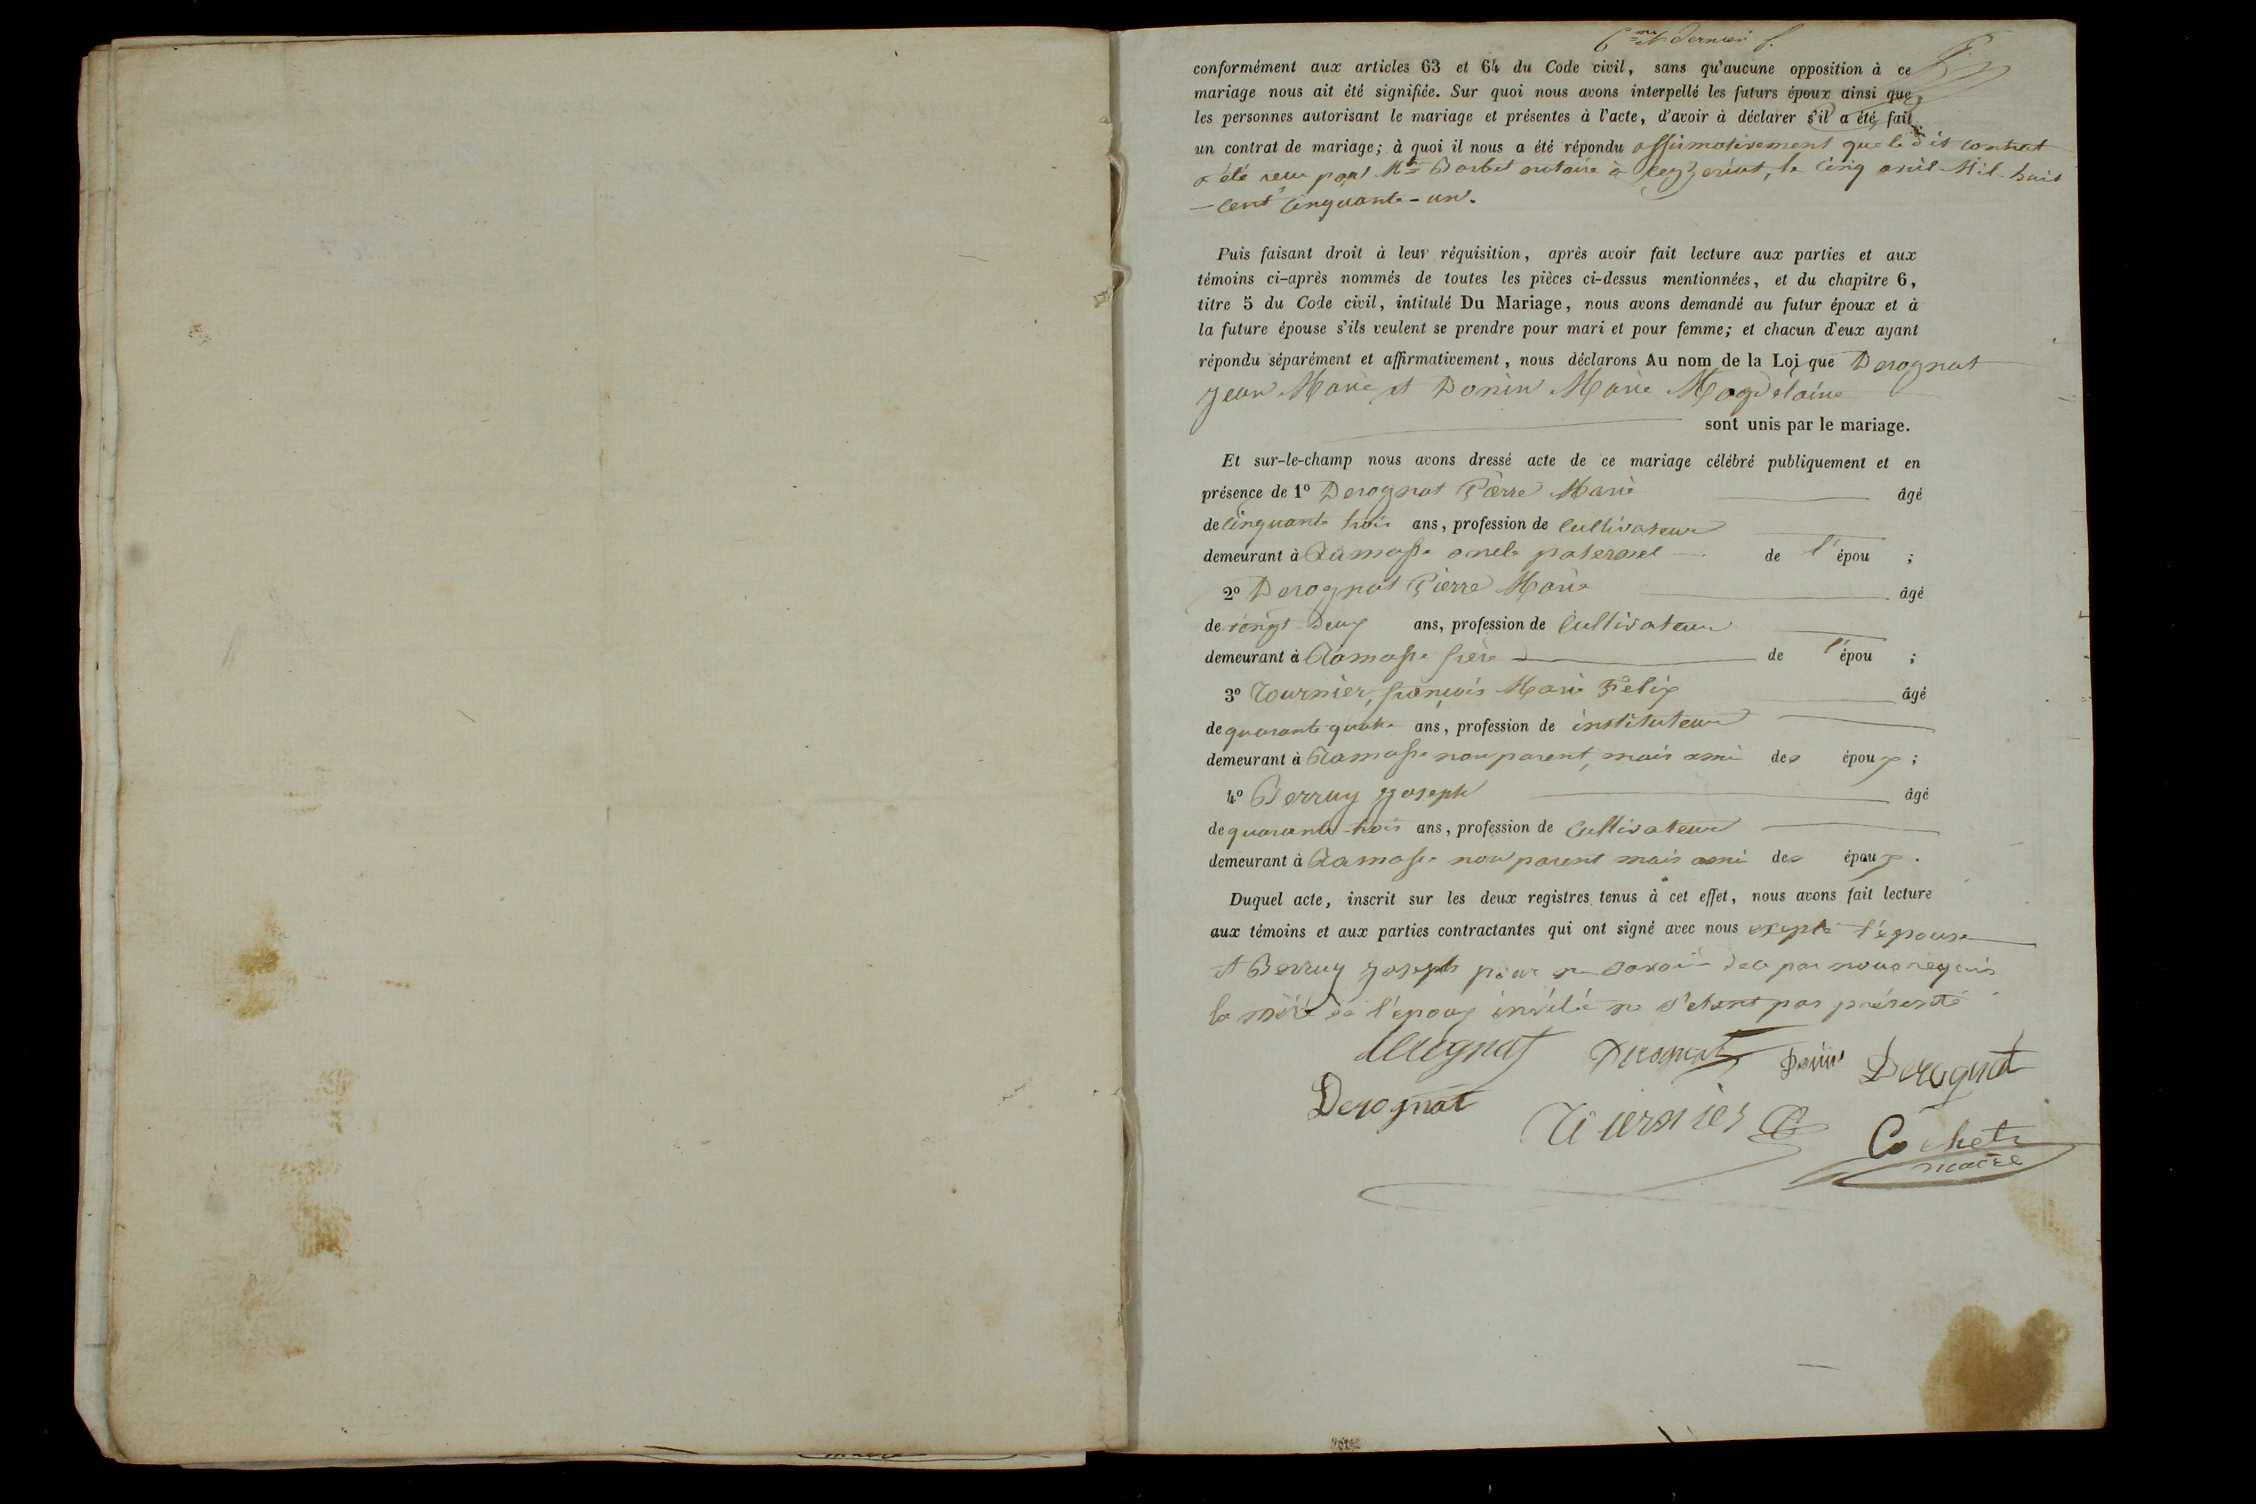 6me et dernier f.
conformément aux articles 63 et 64 du Code civil, sans qu'aucune opposition à ce
mariage nous ait été signifiée. Sur quoi nous avons interpellé les futurs époux ainsi que
les personnes autorisant le mariage et présentes à l'acte, d'avoir à déclarer s'il a été fait
un contrat de mariage; à quoi il nous a été répondu affirmativement que le dit contrat
a été reçu par Me Barbet notaire à Ceyzeriat, le cinq avril Mil-huit
-cent cinquante-un.
Puis faisant droit à leur réquisition, après avoir fait lecture aux parties et aux
témoins ci-après nommés de toutes les pièces ci-dessus mentionnées, et du chapitre 6,
titre 5 du Code civil, intitulé Du Mariage, nous avons demandé au futur époux et à
la future épouse s'ils veulent se prendre pour mari et pour femme; et chacun d'eux ayant
répondu séparément et affirmativement, nous déclarons Au nom de la Loi que Derognat
Jean Marie et Donin Marie Magdelaine
sont unis par le mariage.
Et sur-le-champ nous avons dressé acte de ce mariage célébré publiquement et en
présence de 1º Derognat Pierre Marie âgé
de cinquante trois ans, profession de cultivateur
demeurant à Ramasse oncle paternel de l'épou ;
2º Derognat Pierre Marie âgé
de vingt-deux ans, profession de cultivateur
demeurant à Ramasse frère de l'épou ;
3º Tournier, françois Marie Felix âgé
de quarante-quatre ans, profession de instituteur
demeurant à Ramasse non parent, mais ami des époux ;
4º Berruy Joseph âgé
de quarante-trois ans, profession de cultivateur
demeurant à Ramasse non parent mais ami des époux .
Duquel acte, inscrit sur les deux registres tenus à cet effet, nous avons fait lecture
aux témoins et aux parties contractantes qui ont signé avec nous excepté l'épouse
et Berruy Joseph pour ne savoir de ce par nous requis
la mère de l'époux invitée ne s'étant pas présenté
Derognat Derognat Donin Derognat
Derognat Tournier Cochet
maire